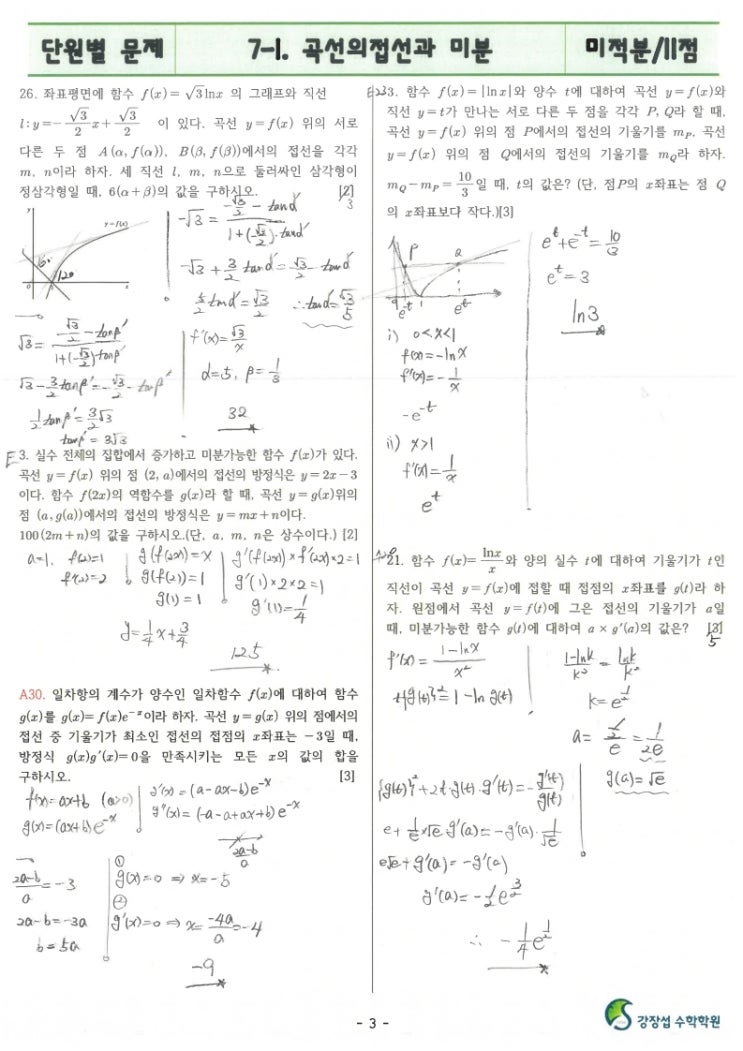 단원별 문제
7-1. 곡선의접선과 미분
미적분/11점
26. 좌표평면에 함수 f(x)= √3 lnx 의 그래프와 직선
l: y=-√3/2 x+√3/2 이 있다. 곡선 y=f(x) 위의 서로
다른 두 점 A(α, f(α)), B(β, f(β))에서의 접선을 각각
m, n이라 하자. 세 직선 l, m, n으로 둘러싸인 삼각형이
정삼각형일 때, 6(α+β)의 값을 구하시오. [2]
3
y=f(x)
60°
120
-√3 = (-√3/2 - tanα′)/(1+(-√3/2)·tanα′)
-√3 + 3/2 tanα′ = -√3/2 - tanα′
5/2 tanα′ = √3/2 ∴ tanα′ = √3/5
√3 = (-√3/2 - tanβ′)/(1+(-√3/2)tanβ′)
√3 - 3/2 tanβ′ = -√3/2 - tanβ′
1/2 tanβ′ = 3/2 √3
tanβ′ = 3√3
f′(x) = √3/x
α=5, β=1/3
32
E 3. 실수 전체의 집합에서 증가하고 미분가능한 함수 f(x)가 있다.
곡선 y=f(x) 위의 점 (2, a)에서의 접선의 방정식은 y=2x-3
이다. 함수 f(2x)의 역함수를 g(x)라 할 때, 곡선 y=g(x)위의
점 (a, g(a))에서의 접선의 방정식은 y=mx+n이다.
100(2m+n)의 값을 구하시오.(단, a, m, n은 상수이다.) [2]
a=1, f(2)=1
f′(2)=2
g(f(2x))=x
g(f(2))=1
g(1)=1
g′(f(2x))×f′(2x)×2=1
g′(1)×2×2=1
g′(1)=1/4
y=1/4 x+3/4
125
A30. 일차항의 계수가 양수인 일차함수 f(x)에 대하여 함수
g(x)를 g(x)= f(x)e^-x이라 하자. 곡선 y=g(x) 위의 점에서의
접선 중 기울기가 최소인 접선의 접점의 x좌표는 -3일 때,
방정식 g(x)g′(x)=0을 만족시키는 모든 x의 값의 합을
구하시오. [3]
f(x)=ax+b (a>0)
g(x)=(ax+b)e^-x
g′(x)=(a-ax-b)e^-x
g″(x)=(-a-a+ax+b)e^-x
(2a-b)/a
(2a-b)/a=-3
2a-b=-3a
b=5a
①
g(x)=0 ⇒ x=-5
②
g′(x)=0 ⇒ x=-4a/a=-4
-9
23. 함수 f(x)=|lnx|와 양수 t에 대하여 곡선 y=f(x)와
직선 y=t가 만나는 서로 다른 두 점을 각각 P, Q라 할 때,
곡선 y=f(x) 위의 점 P에서의 접선의 기울기를 m_P, 곡선
y=f(x) 위의 점 Q에서의 접선의 기울기를 m_Q라 하자.
m_Q-m_P=10/3일 때, t의 값은? (단, 점P의 x좌표는 점 Q
의 x좌표보다 작다.)[3]
P
Q
1
e^t+e^-t=10/3
e^t=3
ln3
i) 0<x<1
f(x)=-lnx
f′(x)=-1/x
-e^-t
ii) x>1
f′(x)=1/x
e^t
21. 함수 f(x)=lnx/x와 양의 실수 t에 대하여 기울기가 t인
직선이 곡선 y=f(x)에 접할 때 접점의 x좌표를 g(t)라 하
자. 원점에서 곡선 y=f(t)에 그은 접선의 기울기가 a일
때, 미분가능한 함수 g(t)에 대하여 a×g′(a)의 값은? [3]
5
f′(x)=(1-lnx)/x²
t{g(t)}²=1-ln g(t)
(1-lnk)/k²=lnk/k²
k=e^1/2
a=(1/2)/e=1/2e
g(a)=√e
{g(t)}²+2t·g(t)·g′(t)=-g′(t)/g(t)
e+1/e×√e·g′(a)=-g′(a)·1/√e
e√e+g′(a)=-g′(a)
g′(a)=-1/2 e^3/2
∴ -1/4 e^1/2
- 3 -
강장섭 수학학원